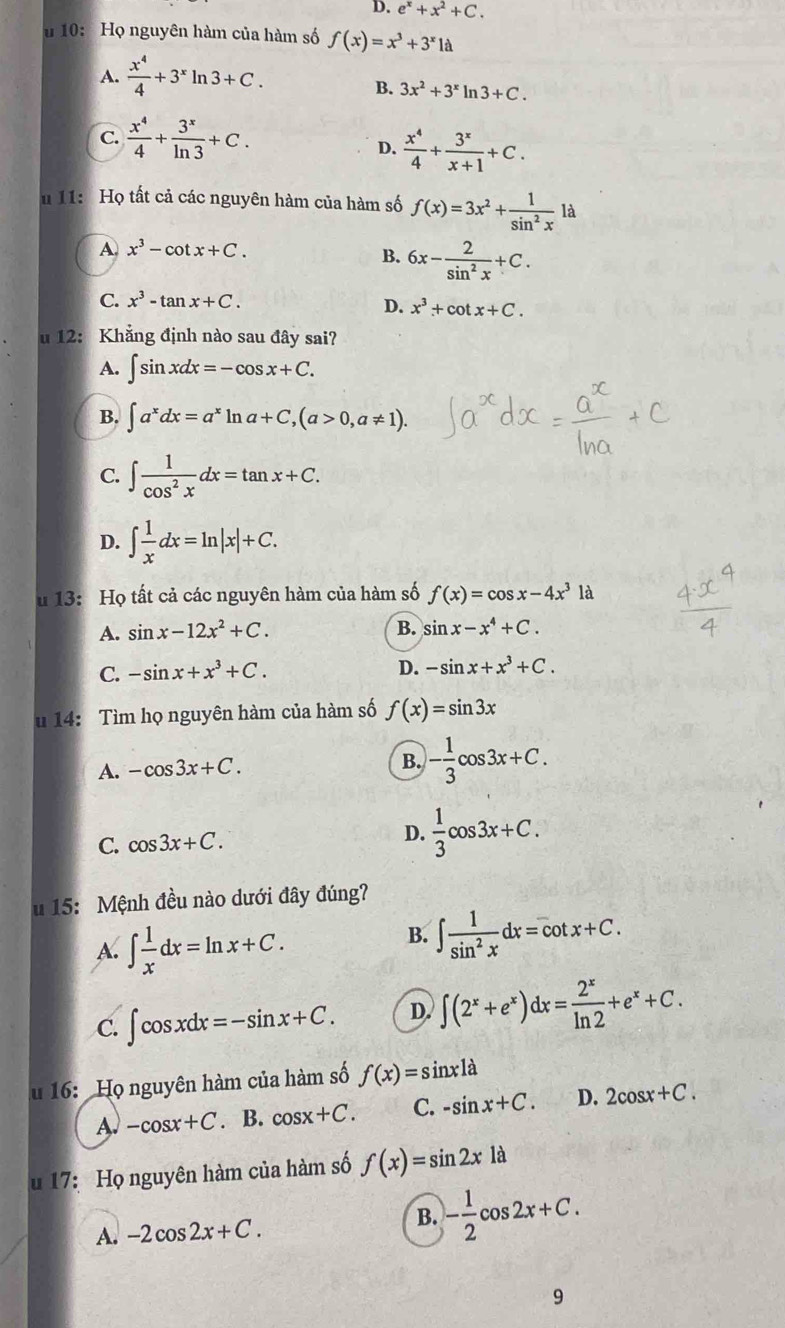 D. eˣ + x² + C.
u 10: Họ nguyên hàm của hàm số f(x) = x³ + 3ˣ là
A. x⁴/4 + 3ˣ ln 3 + C. B. 3x² + 3ˣ ln 3 + C.
C. x⁴/4 + 3ˣ/ln 3 + C. D. x⁴/4 + 3ˣ/(x+1) + C.
u 11: Họ tất cả các nguyên hàm của hàm số f(x) = 3x² + 1/sin² x là
A. x³ - cot x + C. B. 6x - 2/sin² x + C.
C. x³ - tan x + C. D. x³ + cot x + C.
u 12: Khẳng định nào sau đây sai?
A. ∫ sin xdx = -cos x + C.
B. ∫ aˣdx = aˣ ln a + C, (a > 0, a ≠ 1). ∫aˣ dx = aˣ/lna + C
C. ∫ 1/cos² x dx = tan x + C.
D. ∫ 1/x dx = ln|x| + C.
u 13: Họ tất cả các nguyên hàm của hàm số f(x) = cos x - 4x³ là 4·x⁴/4
A. sin x - 12x² + C. B. sin x - x⁴ + C.
C. -sin x + x³ + C. D. -sin x + x³ + C.
u 14: Tìm họ nguyên hàm của hàm số f(x) = sin 3x
A. -cos 3x + C. B. -1/3 cos 3x + C.
C. cos 3x + C. D. 1/3 cos 3x + C.
u 15: Mệnh đều nào dưới đây đúng?
A. ∫ 1/x dx = ln x + C. B. ∫ 1/sin² x dx = cot x + C.
C. ∫ cos xdx = -sin x + C. D. ∫(2ˣ + eˣ)dx = 2ˣ/ln 2 + eˣ + C.
u 16: Họ nguyên hàm của hàm số f(x) = sinx là
A. -cosx + C. B. cosx + C. C. -sin x + C. D. 2cosx + C.
u 17: Họ nguyên hàm của hàm số f(x) = sin 2x là
A. -2 cos 2x + C. B. -1/2 cos 2x + C.
9